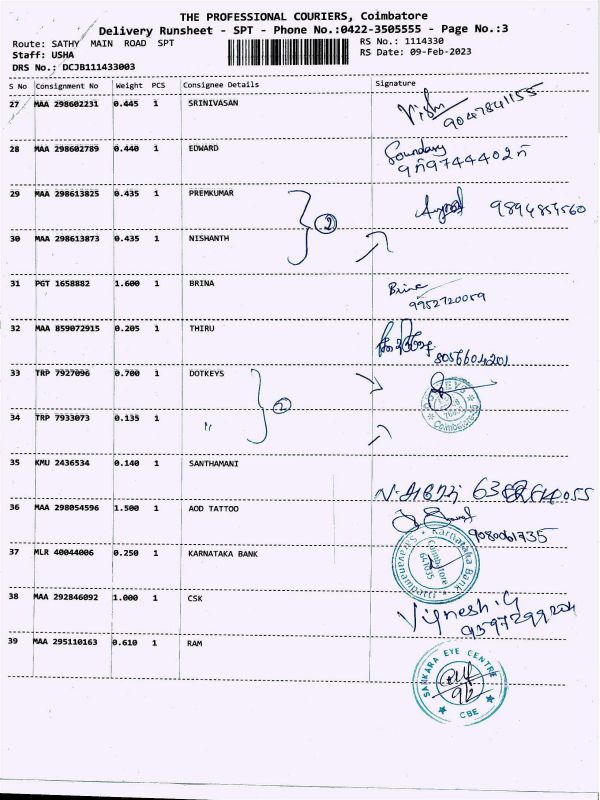 THE PROFESSIONAL COURIERS, Coimbatore
Delivery Runsheet - SPT - Phone No.:0422-3505555 - Page No.:3
Route: SATHY MAIN ROAD SPT
RS No.: 1114330
Staff: USHA
RS Date: 09-Feb-2023
DRS No.: DCJB111433003
S No Consignment No Weight PCS Consignee Details Signature
27 MAA 298602231 0.445 1 SRINIVASAN
9047841155
28 MAA 298602789 0.440 1 EDWARD
Soundary
29 MAA 298613825 0.435 1 PREMKUMAR
9894857560
2
30 MAA 298613873 0.435 1 NISHANTH
31 PGT 1658882 1.600 1 BRINA
Brina
9952720059
32 MAA 859072915 0.205 1 THIRU
8056604201
33 TRP 7927096 0.700 1 DOTKEYS
2
34 TRP 7933073 0.135 1 "
Coimbatore
35 KMU 2436534 0.140 1 SANTHAMANI
36 MAA 298054596 1.500 1 AOD TATTOO
9080061735
37 MLR 40044006 0.250 1 KARNATAKA BANK
Karnataka Bank
Saravanampatti
Coimbatore
641035
38 MAA 292846092 1.000 1 CSK
Vignesh.G
9597299204
39 MAA 295110163 0.610 1 RAM
SANKARA EYE CENTRE
9/2
CBE